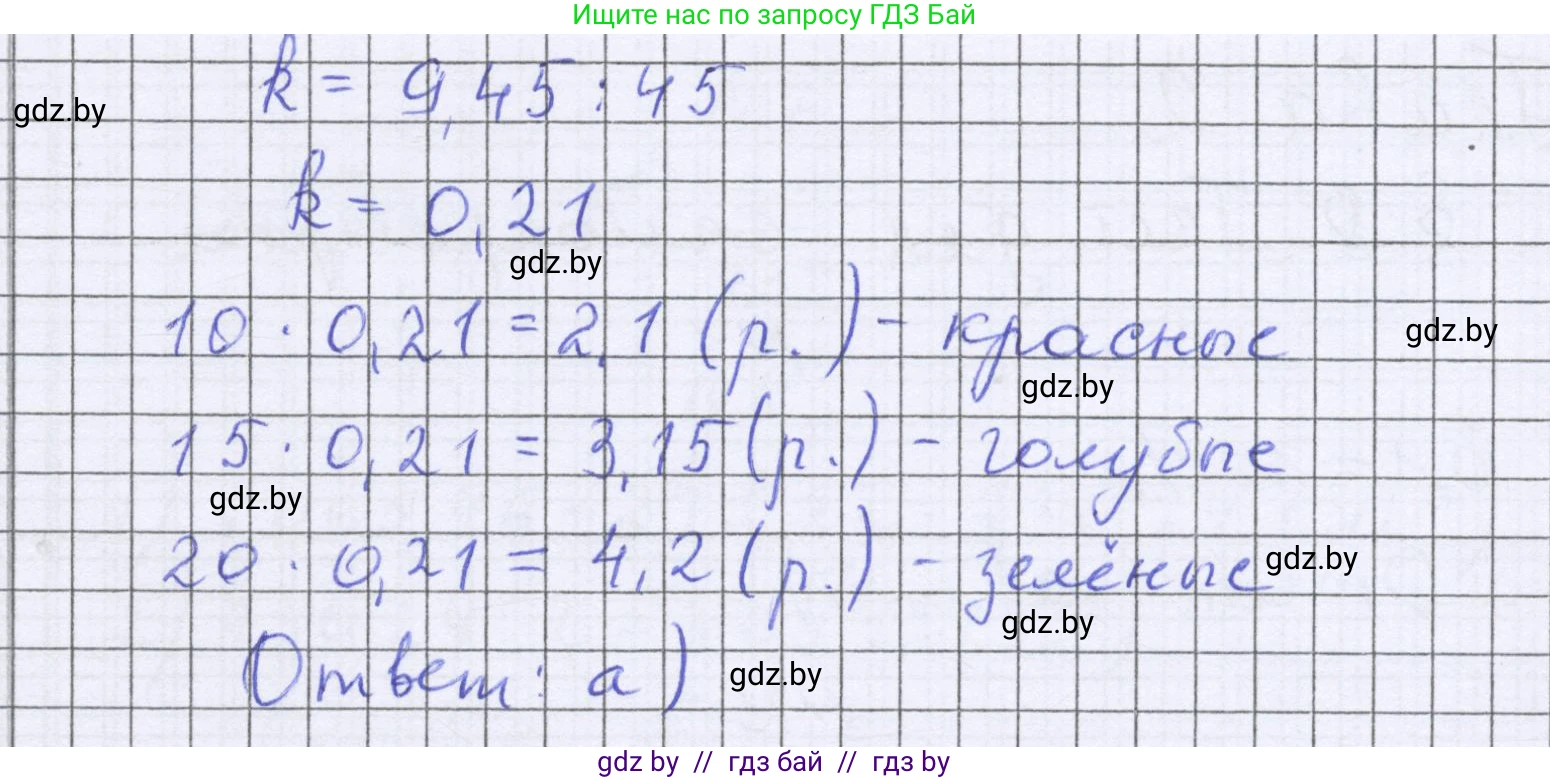 Ищите нас по запросу ГДЗ Бай
k = 9,45 : 45
gdz.by
k = 0,21
gdz.by
10 · 0,21 = 2,1 (р.) - красные
gdz.by
gdz.by
15 · 0,21 = 3,15 (р.) - голубые
gdz.by
20 · 0,21 = 4,2 (р.) - зелёные
gdz.by
gdz.by
Ответ: а)
gdz.by
gdz by // гдз бай // гдз by